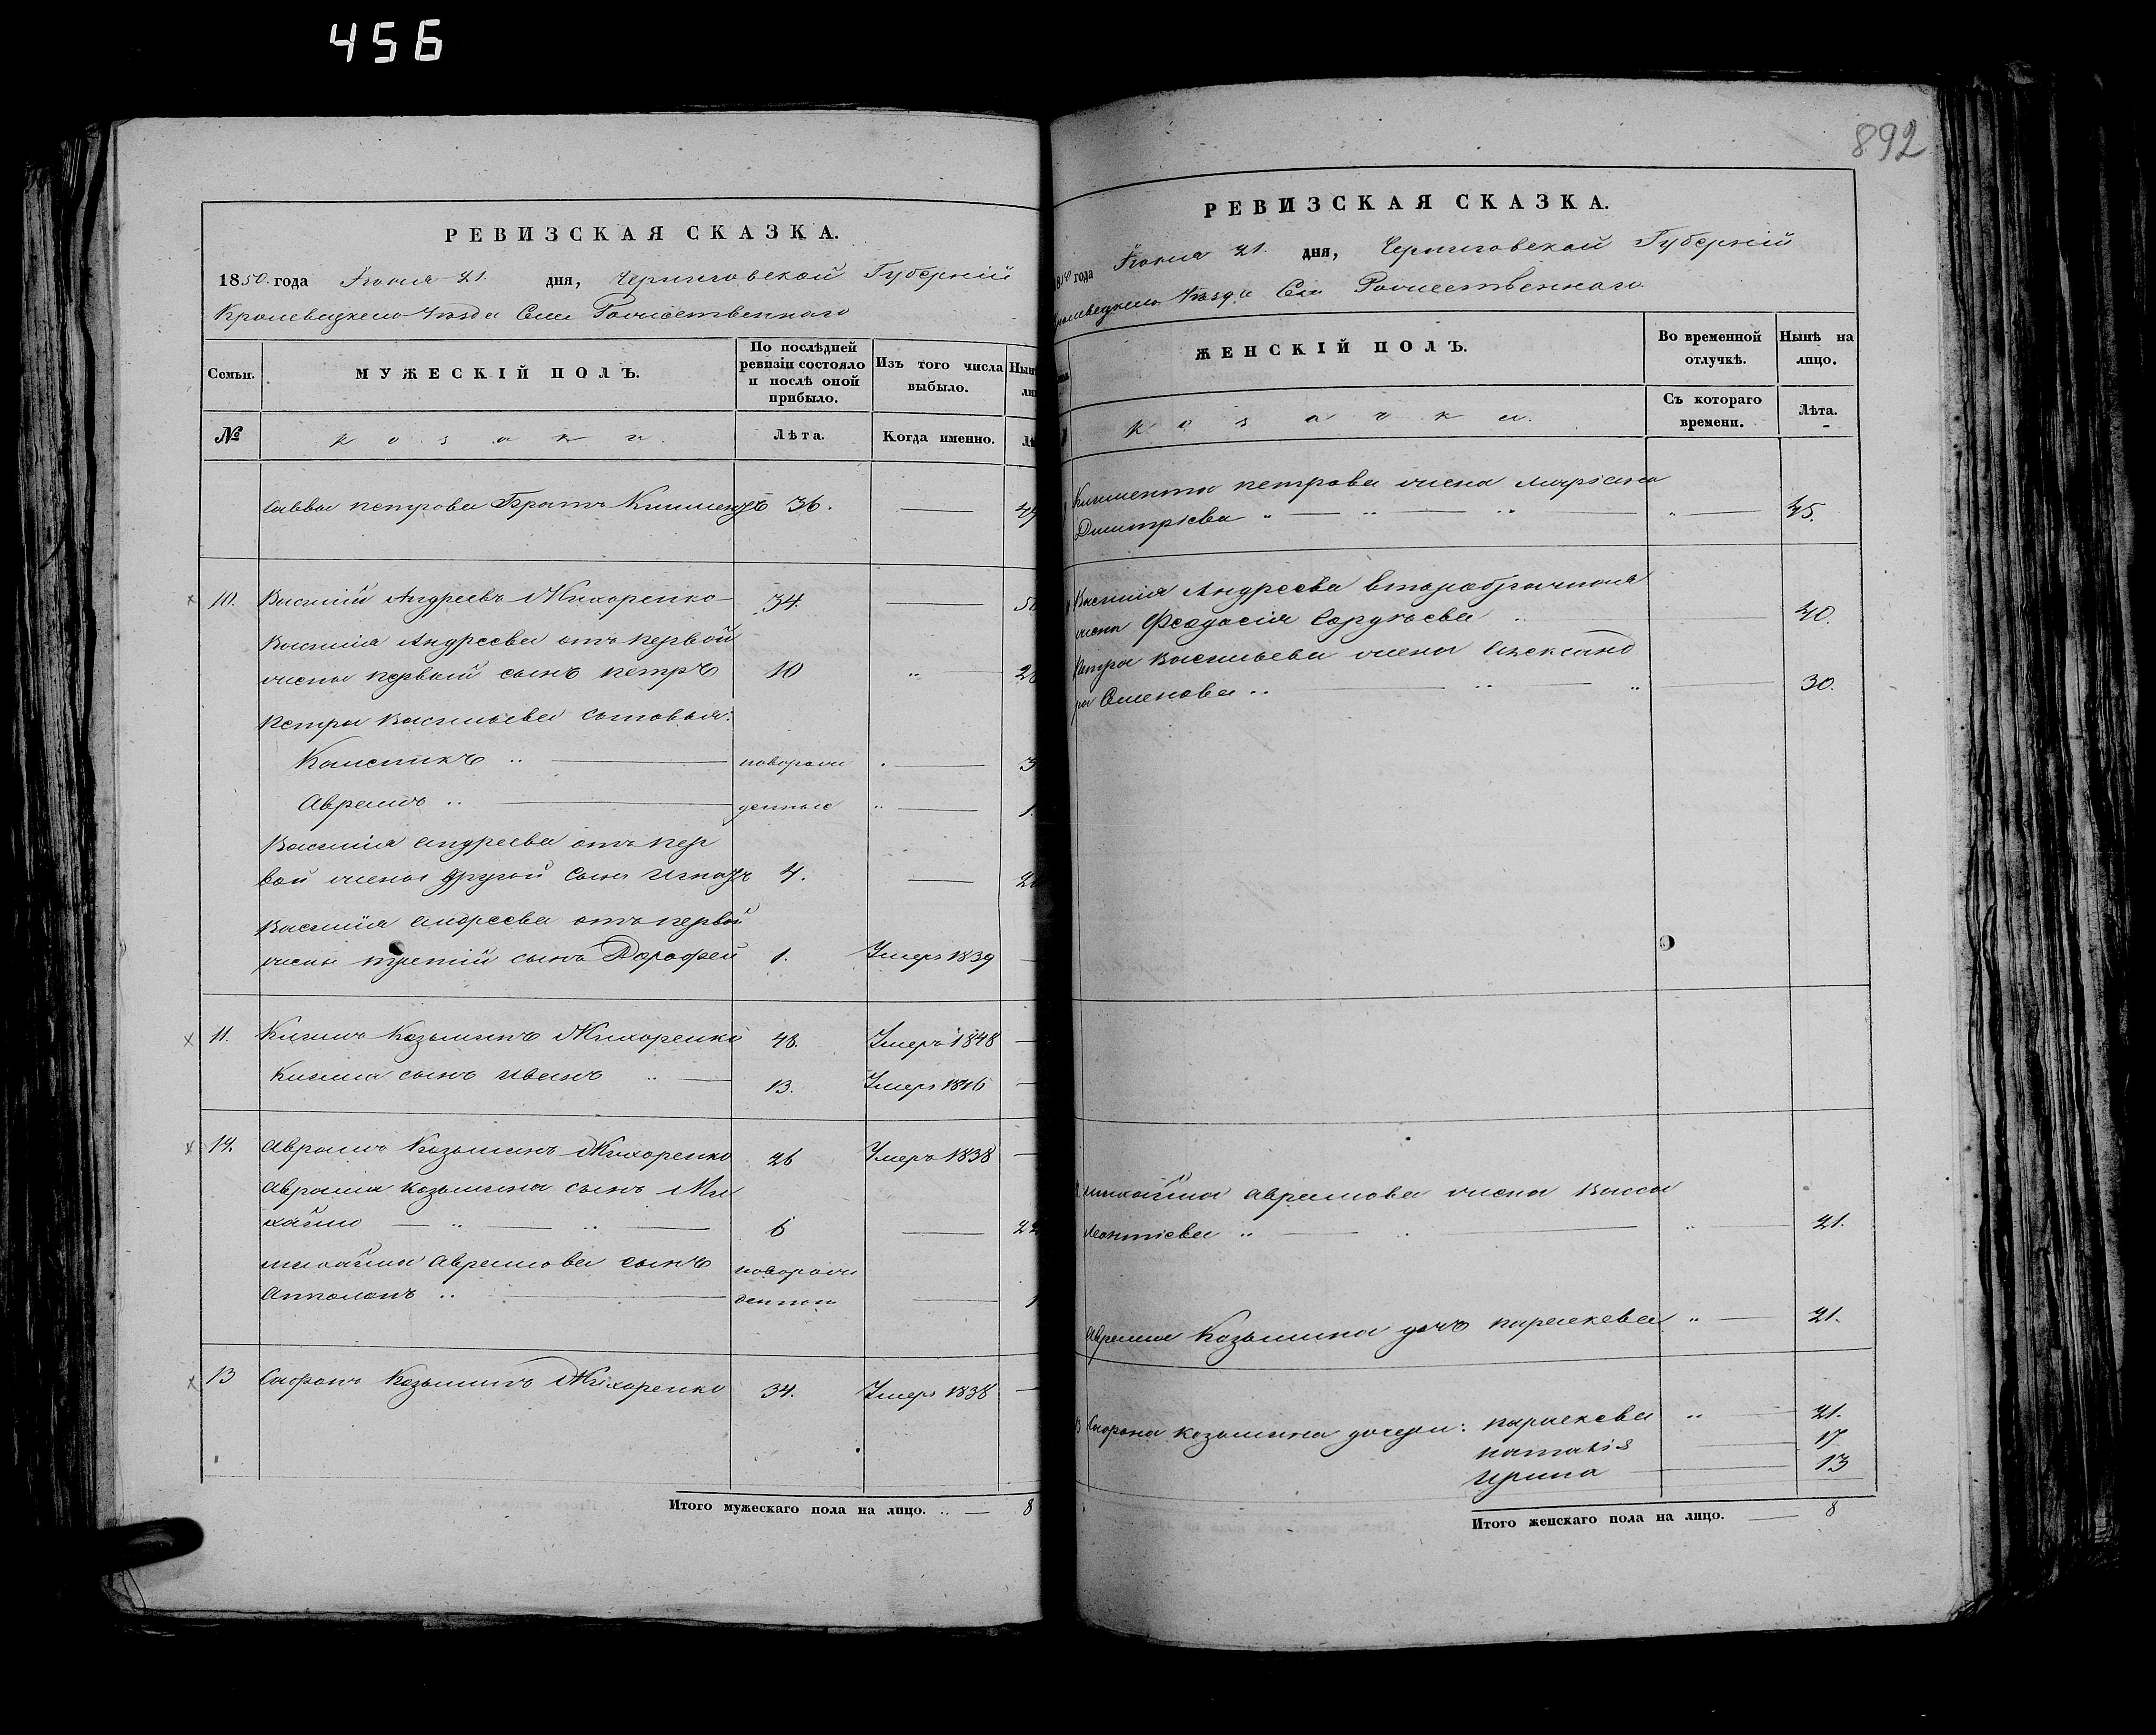 456
892
РЕВИЗСКАЯ СКАЗКА.
1850 года Іюня 21. дня, Черниговской Губерніи
Кролевецкаго Уѣзда Села Рожественнаго
Семьи.
МУЖЕСКІЙ ПОЛЪ.
По послѣдней ревизіи состояло и послѣ оной прибыло.
Изъ того числа выбыло.
№
козаки.
Лѣта.
Когда именно.
Савва Петрова Братъ 36.
10. Василій Андреевъ Жихоренко 34.
Василія Андреева отъ первой
жены первый сынъ Петръ 10
Петра Васильева сыновья:
Каленикъ новорож
Аврамъ денные 1.
Василія Андреева отъ пер
вой жены другой сынъ Игнатъ 4.
Василія Андреева отъ первой
жены третій сынъ Дорофей 1. Умеръ 1839
11. Климъ Козьминъ Жихоренко 48. Умеръ 1848
Клима сынъ Иванъ 13. Умеръ 1846
12. Аврамъ Козьминъ Жихоренко 26 Умеръ 1838
Аврама Козьмина сынъ Ми
хайло 6 22
Михайла Аврамова сынъ новорож
Апполонъ денный 1
13 Сафонъ Козьминъ Жихоренко 34. Умеръ 1838
Итого мужескаго пола на лицо. 8
РЕВИЗСКАЯ СКАЗКА.
1850 года Іюня 21. дня, Черниговской Губерніи
Кролевецкаго Уѣзда Села Рожественнаго
ЖЕНСКІЙ ПОЛЪ.
Во временной отлучкѣ.
Нынѣ на лицо.
козачки.
Съ котораго времени.
Лѣта.
Климента Петрова жена Маріана
Димитріева 45.
Василія Андреева второбрачная
жена Феодосія 40.
Петра Васильева жена Александ
ра Семенова 30.
Михайла Аврамова жена Васса
Леонтіева 21.
Аврама Козьмина дочь Параскева 21.
13 Сафона Козьмина дочери: Параскева 21.
Наталія 17
Ирина 13
Итого женскаго пола на лицо. 8